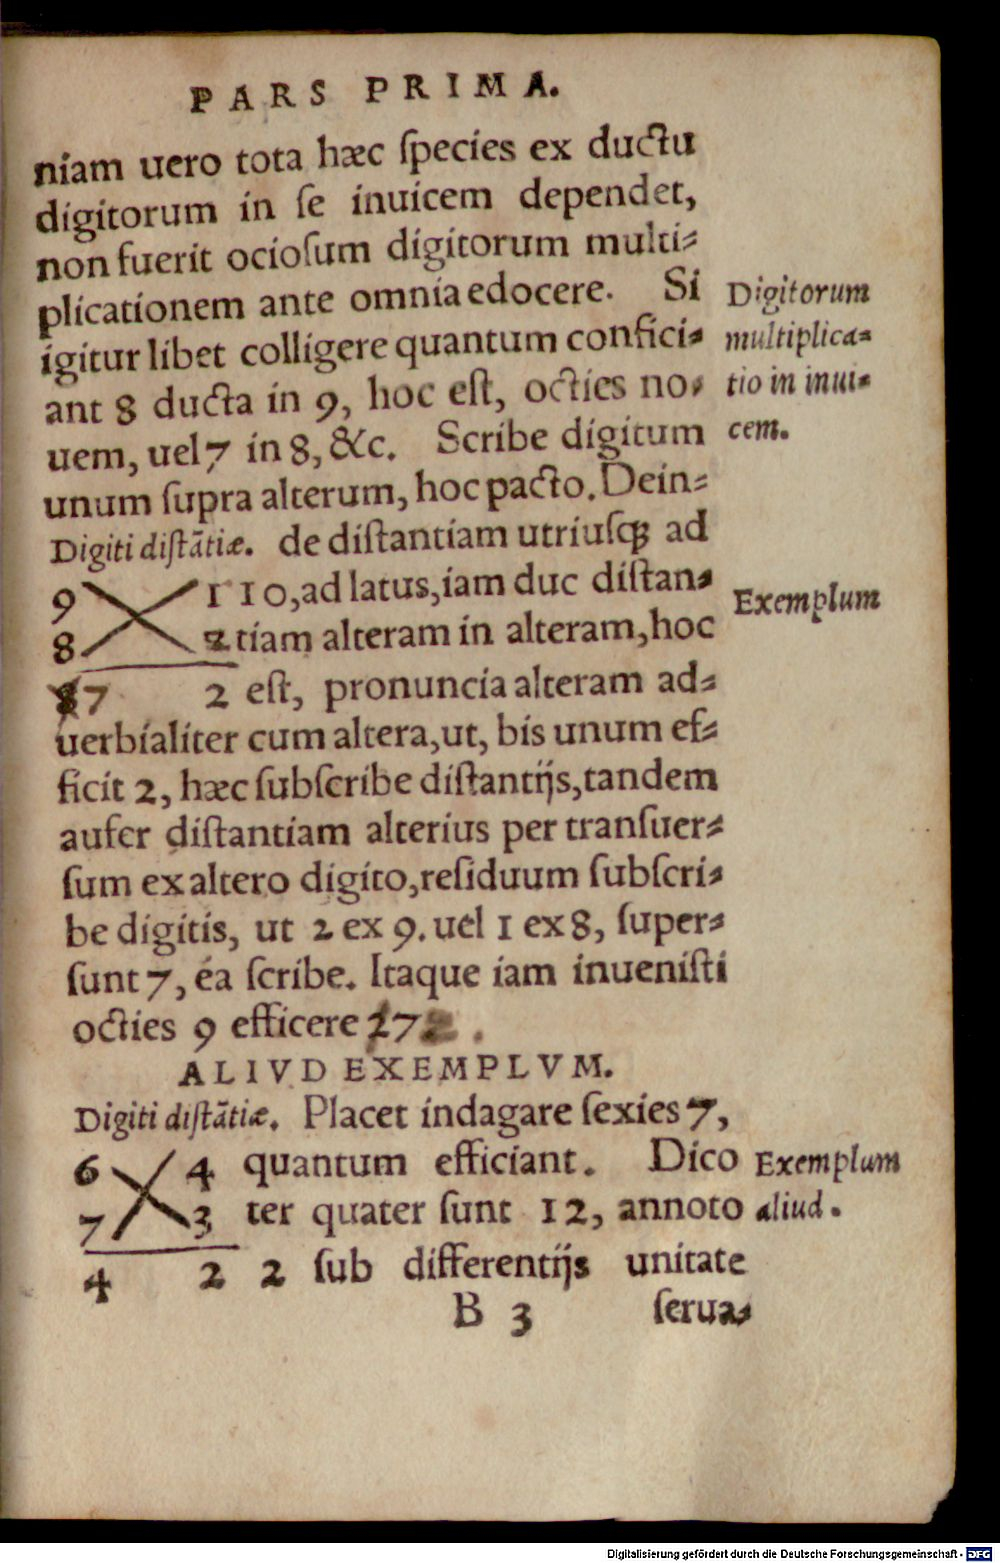 PARS PRIMA.
niam uero tota hæc ſpecies ex ductu
digitorum in ſe inuicem dependet,
non fuerit ocioſum digitorum multi-
plicationem ante omnia edocere. Si
igitur libet colligere quantum confici-
ant 8 ducta in 9, hoc eſt, octies no-
uem, uel 7 in 8, &c. Scribe digitum
unum ſupra alterum, hoc pacto. Dein-
Digitorum
multiplica-
tio in inui-
cem.
Digiti diſtãtiæ. de diſtantiam utriuſq; ad
9 1 10, ad latus, iam duc diſtan-
Exemplum
8 2 tiam alteram in alteram, hoc
7 2 eſt, pronuncia alteram ad-
uerbialiter cum altera, ut, bis unum ef-
ficit 2, hæc ſubſcribe diſtantijs, tandem
aufer diſtantiam alterius per tranſuer-
ſum ex altero digito, reſiduum ſubſcri-
be digitis, ut 2 ex 9. uel 1 ex 8, ſuper-
ſunt 7, ea ſcribe. Itaque iam inueniſti
octies 9 efficere 72.
ALIVD EXEMPLVM.
Digiti diſtãtiæ. Placet indagare ſexies 7,
6 4 quantum efficiant. Dico
7 3 ter quater ſunt 12, annoto
Exemplum
aliud.
4 2 2 ſub differentijs unitate
B 3 ſerua-
Digitalisierung gefördert durch die Deutsche Forschungsgemeinschaft - DFG